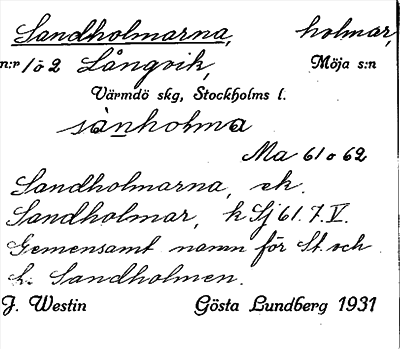 Sandholmarna, holmar,
n:r 1 o 2 Långvik, Möja s:n
Värmdö skg, Stockholms l.
sànholma
Ma 61 o 62
Sandholmarna, ek.
Sandholmar, h Sj 61. 7. V.
Gemensamt namn för St. och
L. Sandholmen.
J. Westin Gösta Lundberg 1931